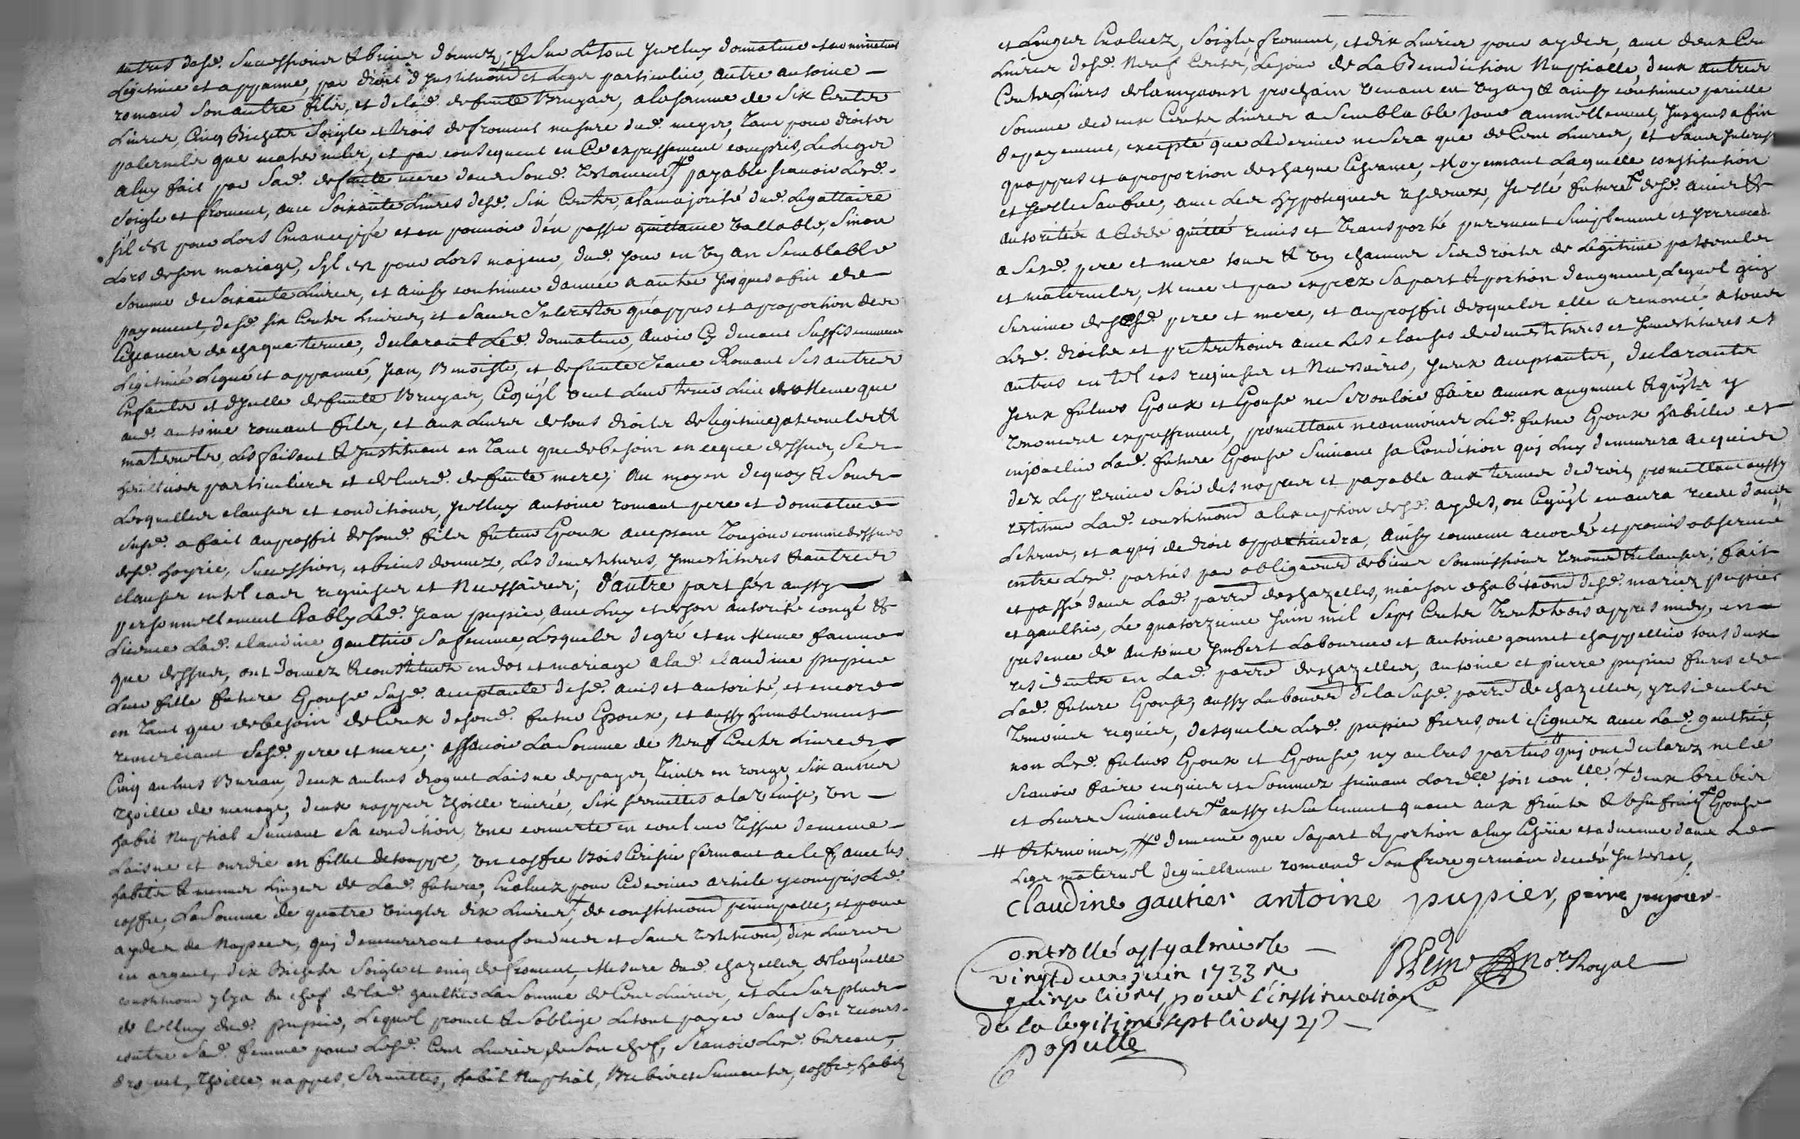 autres desd. successions & biens donnez, & sur le tout icelluy donateur et en mineurs
legitime et appanne, par droit d'institution et legs particulier, autre antoine
romand son autre fils, et de lad. defunte Bruyas, a la somme de six cents
livres, cinq Bichets soigle et trois de froment mesure dud. meys, tant pour droits
paternels que maternels, et par consequent en ce expressement compris, le legs
a luy fait par sad. defunte mere dans sond. testament, payable scavoir lesd.
soigle et froment, avec soixante livres desd. six cents, a la majorité dud. legattaire
s'il est pour lors emancippé et en pouvoir d'en passer quittance vallable, sinon
lors de son mariage, s'yl est pour lors majeur, dud. jour en un an semblable
somme de soixante livres, et ainsy continuer d'année a autre jusques a fin de
payement desd. six cents livres, et sans interets qu'appres et a proportion des
echeances de chaque terme, declarant led. donateur, avoir cy devant suffisemment
legitimé legué et appanné, Jean, Benoiste, et defunte Jeane Romant ses autres
enfants et d'icelle defunte Bruyas, ce qu'yl veut leur tenir lieu de meme que
aud. antoine romant fils, et aux leurs de tous droits de legitime paternels &
maternels, les faisant & instituant en tant que de besoin en ce que dessus, ses
heritiers particuliers et de leurd. defunte mere; Au moyen de quoy & sous
lesquelles clauses et conditions, icelluy antoine romant pere et donateur
susd. a fait au proffit de sond. fils futur Epoux acceptant toujours comme dessus
desd. hoyrie, succession, et biens donnez, les demestitures, investitures & autres
clauses en tel cas requises et necessaires; d'autre part s'en aussy
personnellement etably led. Jean pupier, avec luy et de son autorité congé &
licence lad. claudine gaulthier sa femme, lesquels de gré et en meme forme
que dessus, ont donnez & constituez en dot et mariage a lad. claudine pupier
leur fille future Epouse susd. acceptante desd. avis et autorité, et encore
en tant que de besoin de ceux de sond. futur Epoux, et aussy humblement
remerciant sesd. pere et mere; assavoir la somme de neuf cents livres,
Cinq aulnes Bureau, deux aulnes droguet laisne de payes, teints en rouge, six aulnes
thoille de menage, deux nappes thoille rivrée, six serviettes a la venise, un
habit nuptial suivant sa condition, une couverte en couleur tissue de meme
laisne et ourdie en fillet d'etouppe, un coffre Bois cerisier fermant a clef avec les
habits & menus linges de lad. future, Evaluez pour ce dernier article y compris led.
coffre, la somme de quatre vingts dix livres, de constitution principalle, et pour
ayder de nopces, qui demeureront confondues et sans restitution, dix livres
en argent, dix Bichets soigle et cinq de froment, mesure dud. chazelles, de laquelle
constitution y l'y a du chef de lad. gaulthier la somme de Cent livres, et le surplus
de celluy dud. pupier, lequel promet & s'oblige le tout payer sauf son recours
contre sad. femme pour lesd. Cent livres, de son chef, scavoir lesd. bureau,
droguet, thoille, nappes, serviettes, habit nuptial, Brebis et suivantes, coffre, habits
et linges Evaluez, soigle, froment, et dix livres pour ayder, avec deux Cent
livres desd. neuf Cents, le jour de la Benediction Nuptialle, deux autres
Cents livres de la my aoust prochain venant en un an & ainsy continuer pareille
somme de deux Cents livres a semblable jour annuellement, jusques a fin
de payement, excepté que le dernier ne sera que de Cent livres, et sans interets
qu'appres et a proportion de chaque Echeance, Moyennant laquelle constitution
et icelle sauve, avec les hypotheques & hereux, icelle future desd. avis &
autorités a cedde quitté remis et transporté purement simplement et irrevocab.
a sesd. pere et mere tous & un chacuns ses droits de legitime paternels
et maternels, Meme et par exprez sa part & portion d'augment, lequel
survenir desd. pere et mere, et au proffit desquels elle a renoncé a tous
lesd. droits et pretentions avec les clauses de demestitures et investitures et
autres en tel cas requises et necessaires, iceux acceptants, declarants
iceux futurs Epoux et Epouse ne se vouloir faire aucun augment & qu'ils y
renoncent expressement, promettant neanmoins led. futur Epoux habiller et
enjoailler lad. future Epouse suivant sa condition qui luy demeurera acquis
dez le premier soir des nopces et payable aux termes de droit, promettant aussy
restituer lad. constitution a l'exception desd. aydes, ou ce qu'yl en aura receu
le terme, et a qui de droit appartiendra, Ainsy convenu accordé et promis observer
entre lesd. parties par obligations de biens soumissions renonc. & clauses; fait
et passé dans lad. parroisse de chazelles, maison d'habitation desd. mariez pupier
et gaulthier, Le quatorzieme juin mil sept cents trente trois appres midy, en
presence de Antoine Imbert laboureur et antoine gounet chappellier tous deux
residents en lad. parr. de chazelles, antoine et pierre pupier freres de
lad. future Epouse, aussy laboureurs de la susd. parr. de chazelles, y residents
temoins requis, desquels lesd. pupier freres, ont signez avec lad. gaulthier,
non lesd. futurs Epoux et Epouse, ny autres parties qui ont declarez ne le
scavoir faire enquis et sommez suivant l'ordce. soit con.lle. x deux brebis
et leurs suivantes aussy et seulement quant aux fruits & usufruit Epouse
# & temoins, # de meme que sa part & portion a luy echüe et advenue dans le
legs maternel de guillaume romand son frere germain decedé intestat,
Claudine gautier antoine pupier, pierre pupier.
Controllé a St galmier le
vingt deux juin 1733 Re
quinse livres pour l'institution
de la legitime sept livres
Populle
not. Royal